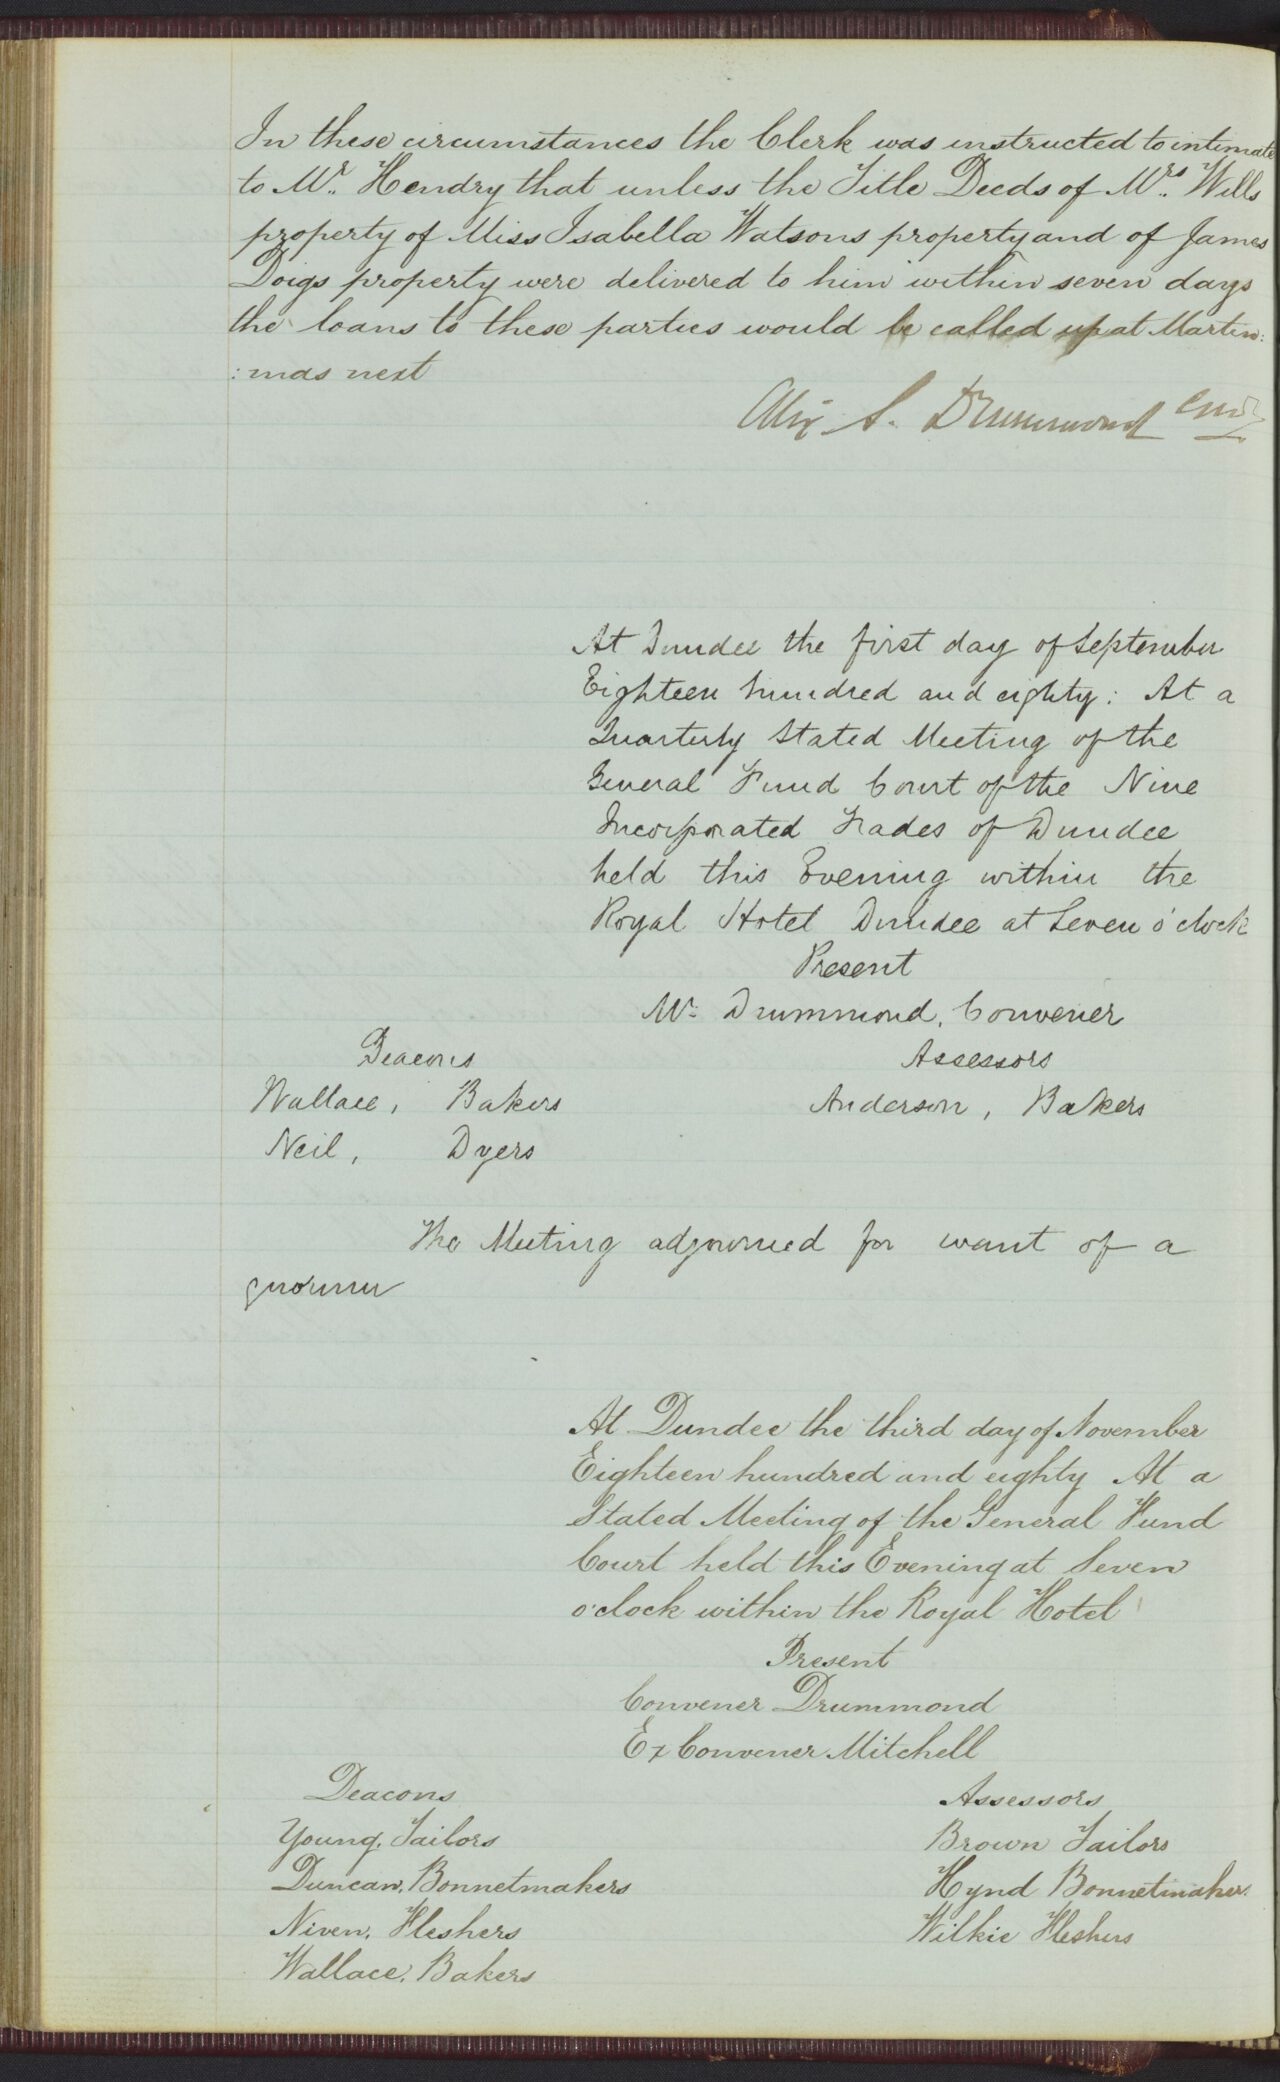 In these circumstances the Clerk was instructed to intimate
to Mr. Hendry that unless the Title Deeds of Mrs. Wills
property of Miss Isabella Watsons property and of James
Doigs property were delivered to him within seven days
the loans to these parties would be called up at Martin:
:mas next
Alex S. Drummond
At Dundee the first day of September
Eighteen hundred and eighty: At a
Quarterly Stated Meeting of the
General Fund Court of the Nine
Incorporated Trades of Dundee
held this Evening within the
Royal Hotel Dundee at Seven o'clock
Present
Mr. Drummond, Convener
Deacons Assessors
Wallace, Bakers Anderson, Bakers
Neil, Dyers
The Meeting adjourned for want of a
quorum
At Dundee the third day of November
Eighteen hundred and eighty At a
Stated Meeting of the General Fund
Court held this Evening at Seven
o'clock within the Royal Hotel
Present
Convener Drummond
Ex Convener Mitchell
Deacons Assessors
Young, Tailors Brown Tailors
Duncan, Bonnetmakers Hynd Bonnetmakers
Niven, Fleshers Wilkie Fleshers
Wallace, Bakers